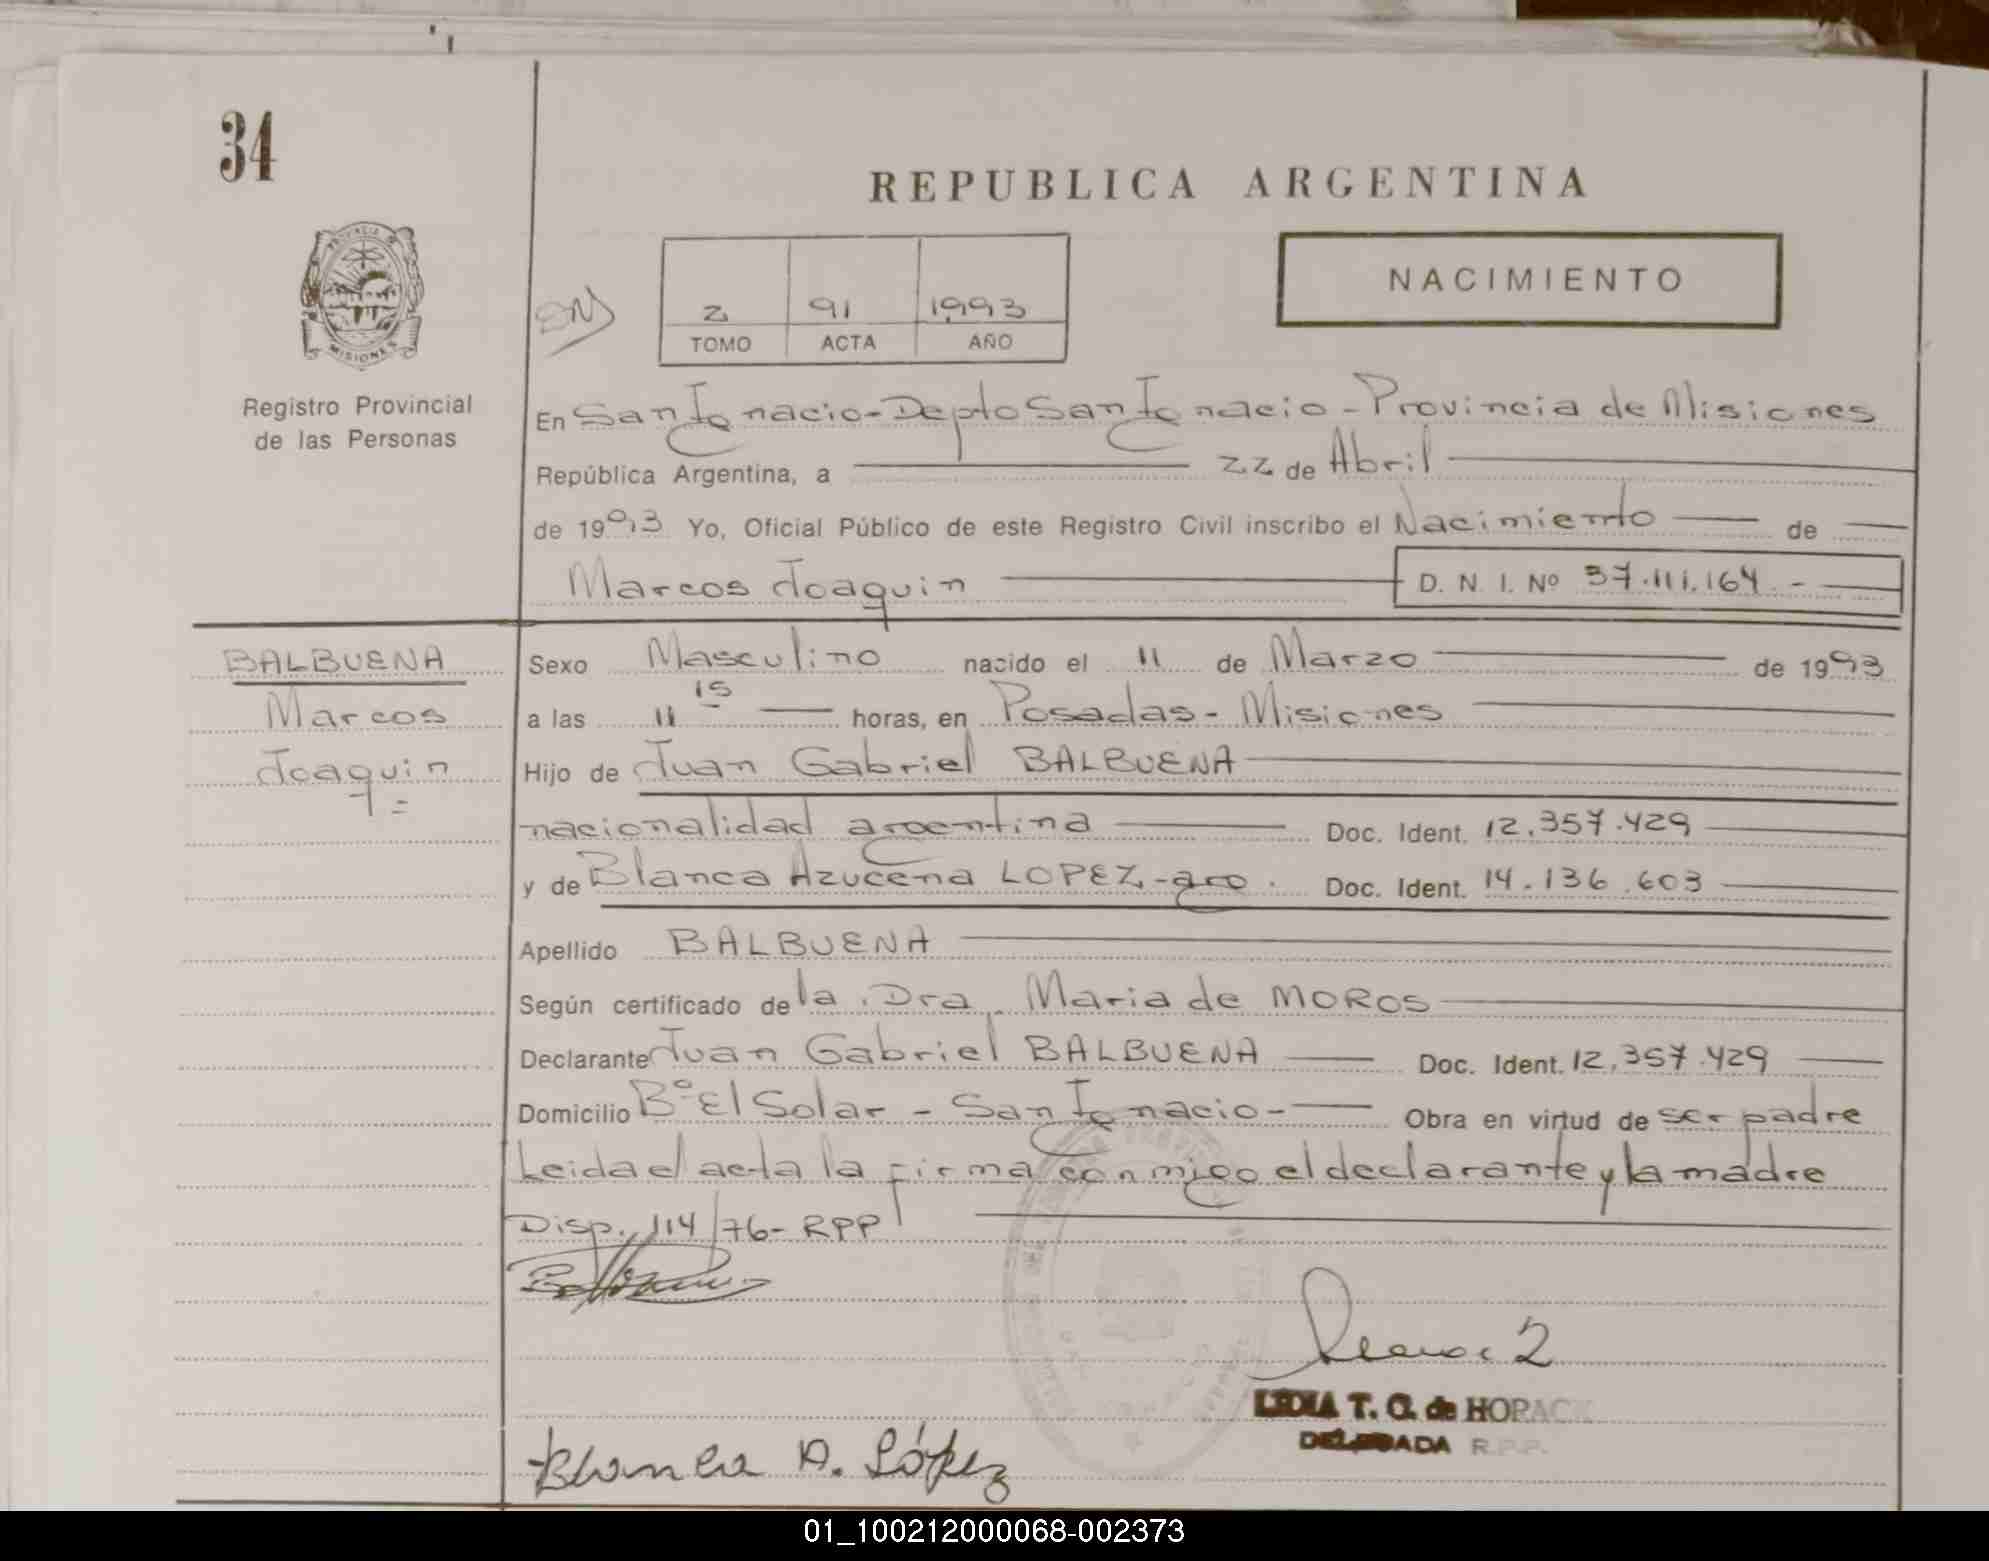 34
REPUBLICA ARGENTINA
PROVINCIA DE
MISIONES
NACIMIENTO
2 91 1993
TOMO ACTA AÑO
Registro Provincial
de las Personas
En San Ignacio - Depto San Ignacio - Provincia de Misiones
República Argentina, a 22 de Abril
de 1993 Yo, Oficial Público de este Registro Civil inscribo el Nacimiento de
Marcos Joaquin D. N. I. Nº 37.111.164.-
BALBUENA
Marcos
Joaquin =
Sexo Masculino nacido el 11 de Marzo de 1993
a las 11 15 horas, en Posadas - Misiones
Hijo de Juan Gabriel BALBUENA
nacionalidad argentina Doc. Ident. 12.357.429
y de Blanca Azucena LOPEZ - arg. Doc. Ident. 14.136.603
Apellido BALBUENA
Según certificado de la Dra Maria de MOROS
Declarante Juan Gabriel BALBUENA Doc. Ident. 12.357.429
Domicilio Bº El Solar - San Ignacio - Obra en virtud de ser padre
Leida el acta la firma conmigo el declarante y la madre
Disp. 114/76 - RPP
LIDIA T. G. de HORACK
DELEGADA R.P.P.
Blanca A. López
01_100212000068-002373